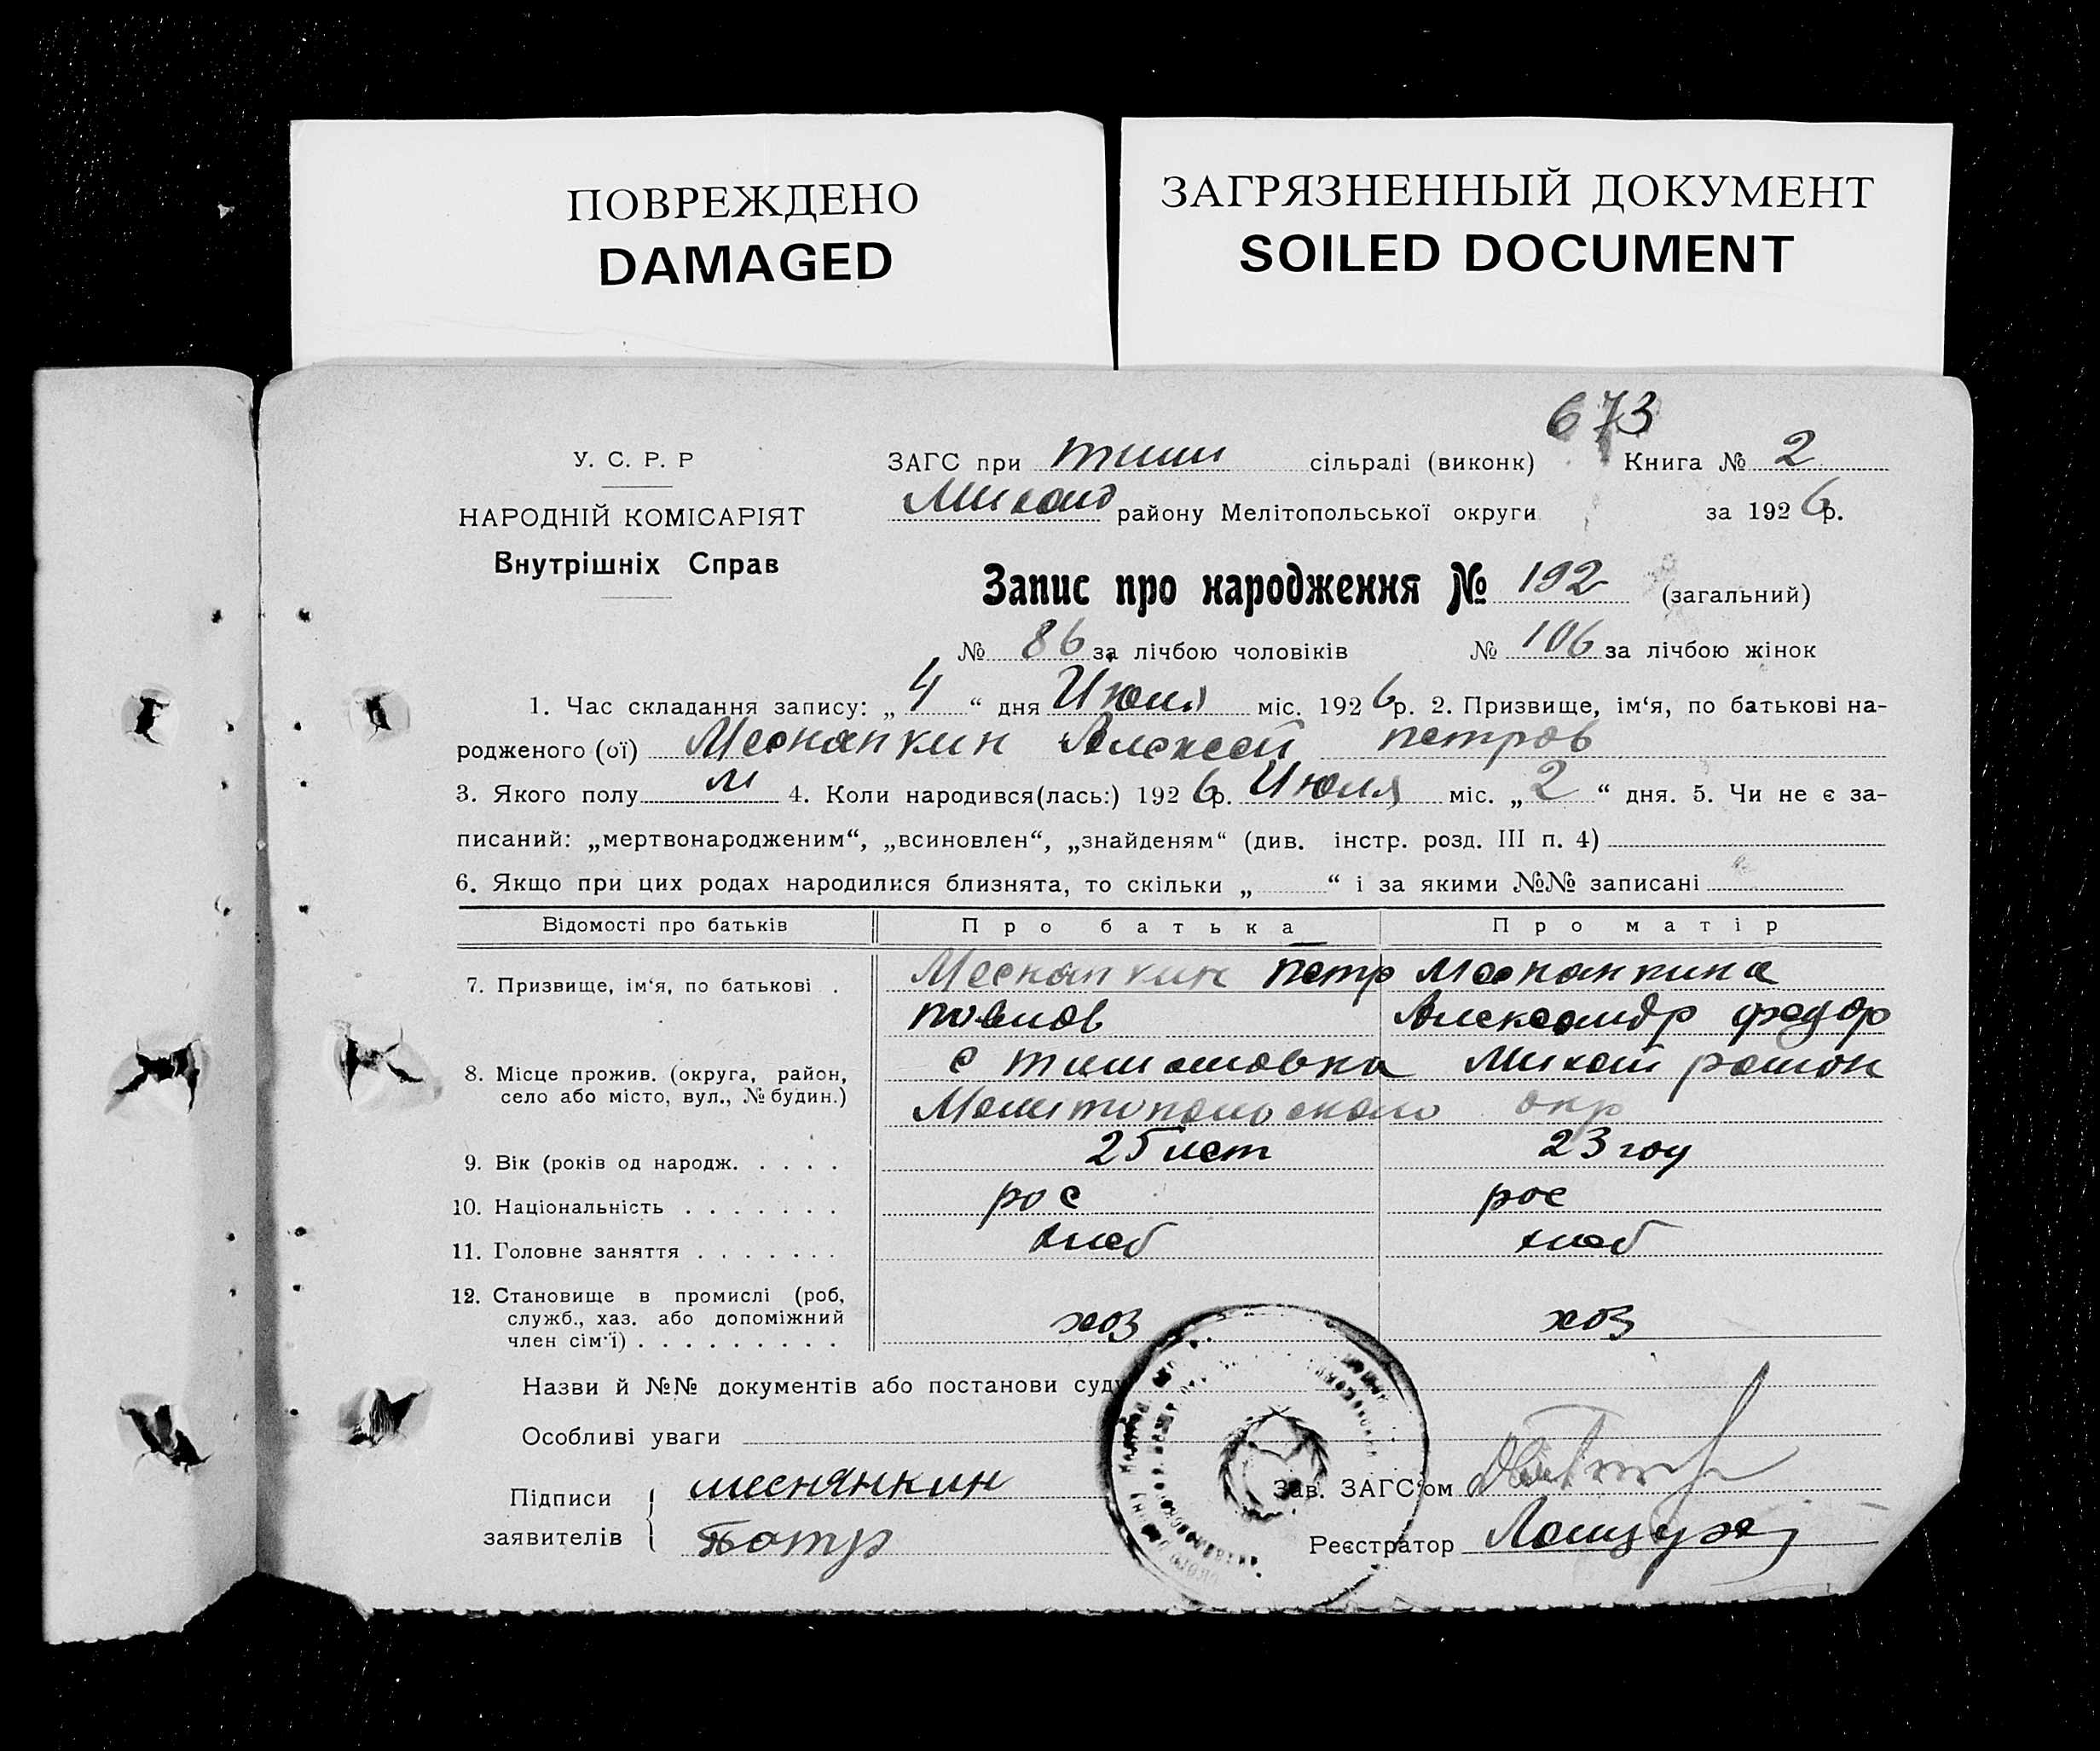 ПОВРЕЖДЕНО
DAMAGED
ЗАГРЯЗНЕННЫЙ ДОКУМЕНТ
SOILED DOCUMENT
673
У. С. Р. Р
НАРОДНІЙ КОМІСАРІЯТ
Внутрішніх Справ
ЗАГС при тим сільраді (виконк) Книга № 2
Михай району Мелітопольської округи за 1926р.
Запис про народження № 192 (загальний)
№ 86 за лічбою чоловіків № 106 за лічбою жінок
1. Час складання запису: „4“ дня Июля міс. 1926р. 2. Призвище, ім‘я, по батькові на-
родженого (ої) Меснянкин Алексей петров
3. Якого полу м 4. Коли народився(лась:) 1926р. Июля міс. „2“ дня. 5. Чи не є за-
писаний: „мертвонародженим“, „всиновлен“, „знайденям“ (див. інстр. розд. III п. 4)
6. Якщо при цих родах народилися близнята, то скільки „ “ і за якими №№ записані
Відомості про батьків Про батька Про матір
7. Призвище, ім‘я, по батькові . Меснянкин петр Меснянкина
Александр федор
8. Місце прожив. (округа, район, с тимашовка Михай район
село або місто, вул., № будин.) Мелитопольского окр
9. Вік (років од народж. . . . . 25 лет 23 год
10. Національність . . . . . . . рос рос
11. Головне заняття . . . . . . . хлеб хлеб
12. Становище в промислі (роб,
служб., хаз. або допоміжний хоз хоз
член сім‘ї) . . . . . . . . .
Назви й №№ документів або постанови суду
Особливі уваги
Підписи меснянкин Зав. ЗАГС‘ом
заявителів Реєстратор